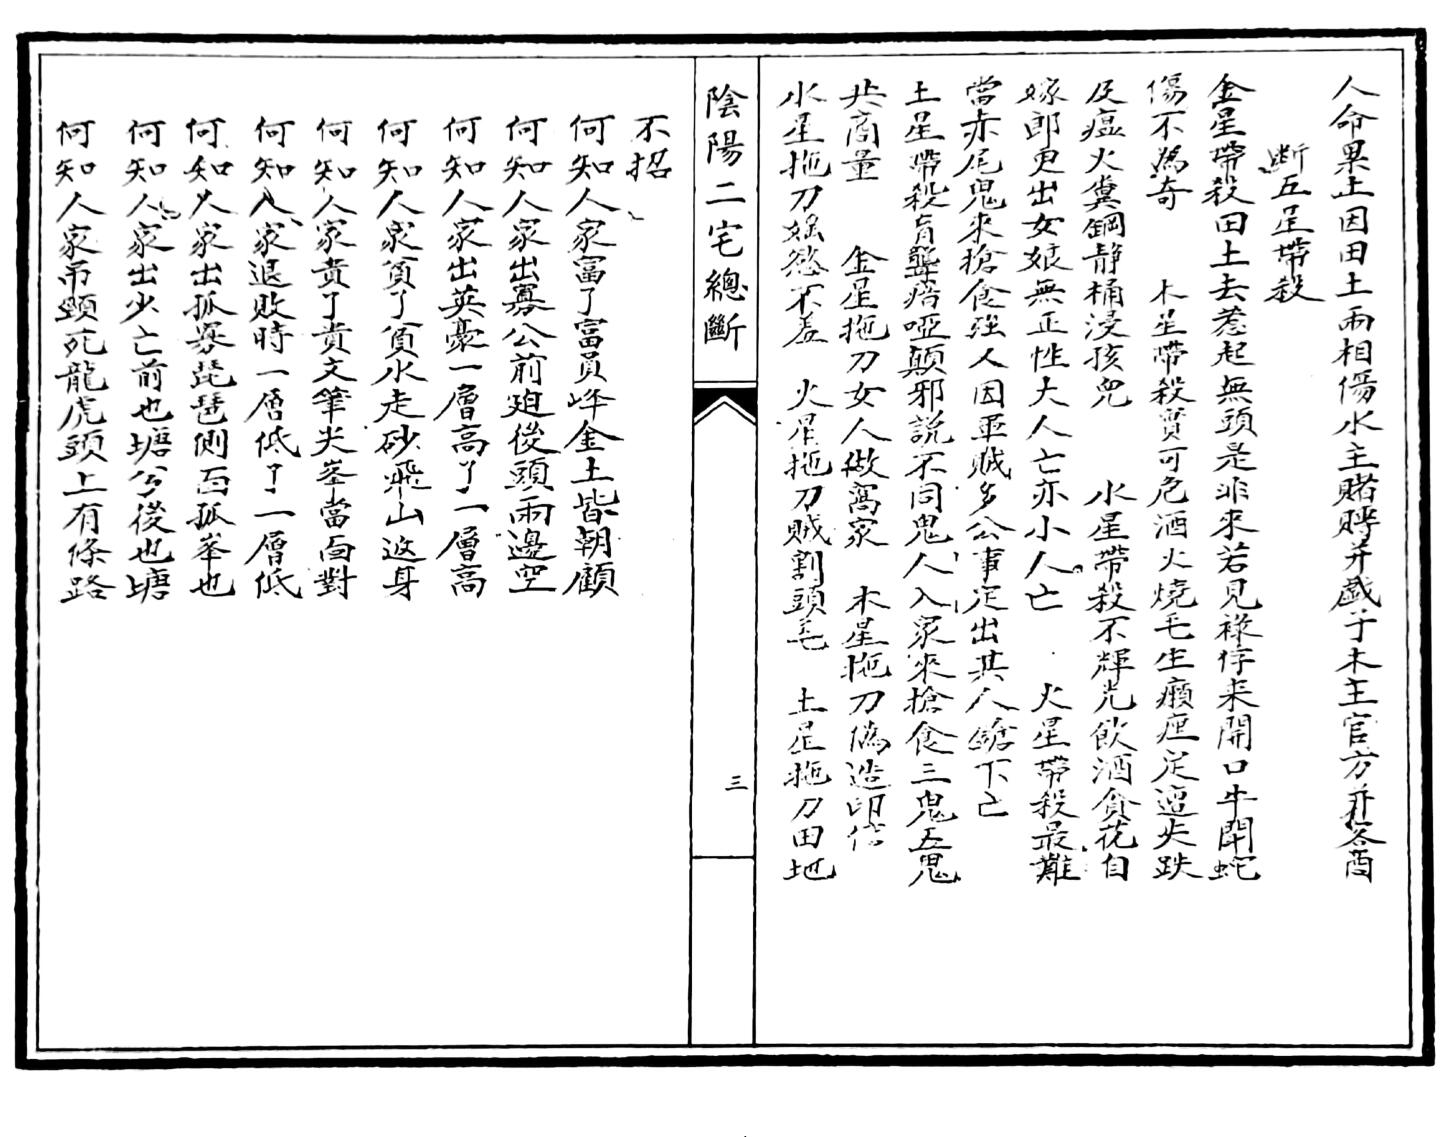 人命果土因田土兩相傷水主賭賻并戲子木主官方并
斷五星帶殺
金星帶殺田土去惹起無頭是非來若見祿存来開口牛鬥蛇
傷不為奇　木星帶殺實可危酒火燒毛生癩疰足迍失跌
及瘟火糞鋼靜桶浸孩兒　水星帶殺不輝光飲酒貪花自
嫁郎更出女娘無正性大人亡亦小人亡　火星帶殺最難
當赤尾鬼來搶食強人因軍贼多公事定出其人鎗下亡
土星帶殺盲聾瘖啞顛邪説不同鬼人入家來搶食三鬼五鬼
共商量　金星拖刀女人做窩家　木星拖刀偽造印信
水星拖刀婬慾不羞　火星拖刀贼割頭毛　土星拖刀田地
陰陽二宅總斷
三
不招
何知人家富了富員峰金土皆朝顧
何知人家出寡公前廹後頭兩邊空
何知人家出英豪一層高了一層高
何知人家貧了貧水走砂飛山返身
何知人家貴了貴文筆尖峯當面對
何知人家退敗時一層低了一層低
何知人家出孤寡琵琶側面孤峯也
何知人家出少亡前也塘兮後也塘
何知人家吊頸死龍虎頭上有條路